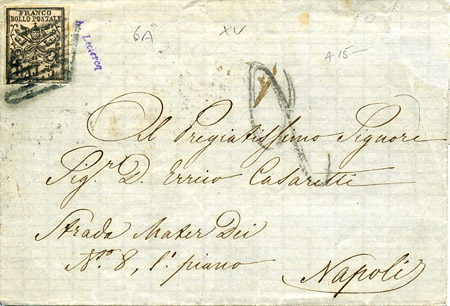 FRANCO
BOLLO POSTALE
6A XV
A15-
Al Pregiatissimo Signore
Sigr. D. Errico Casaretti
Strada Mater Dei
No. 8, 1° piano
Napoli